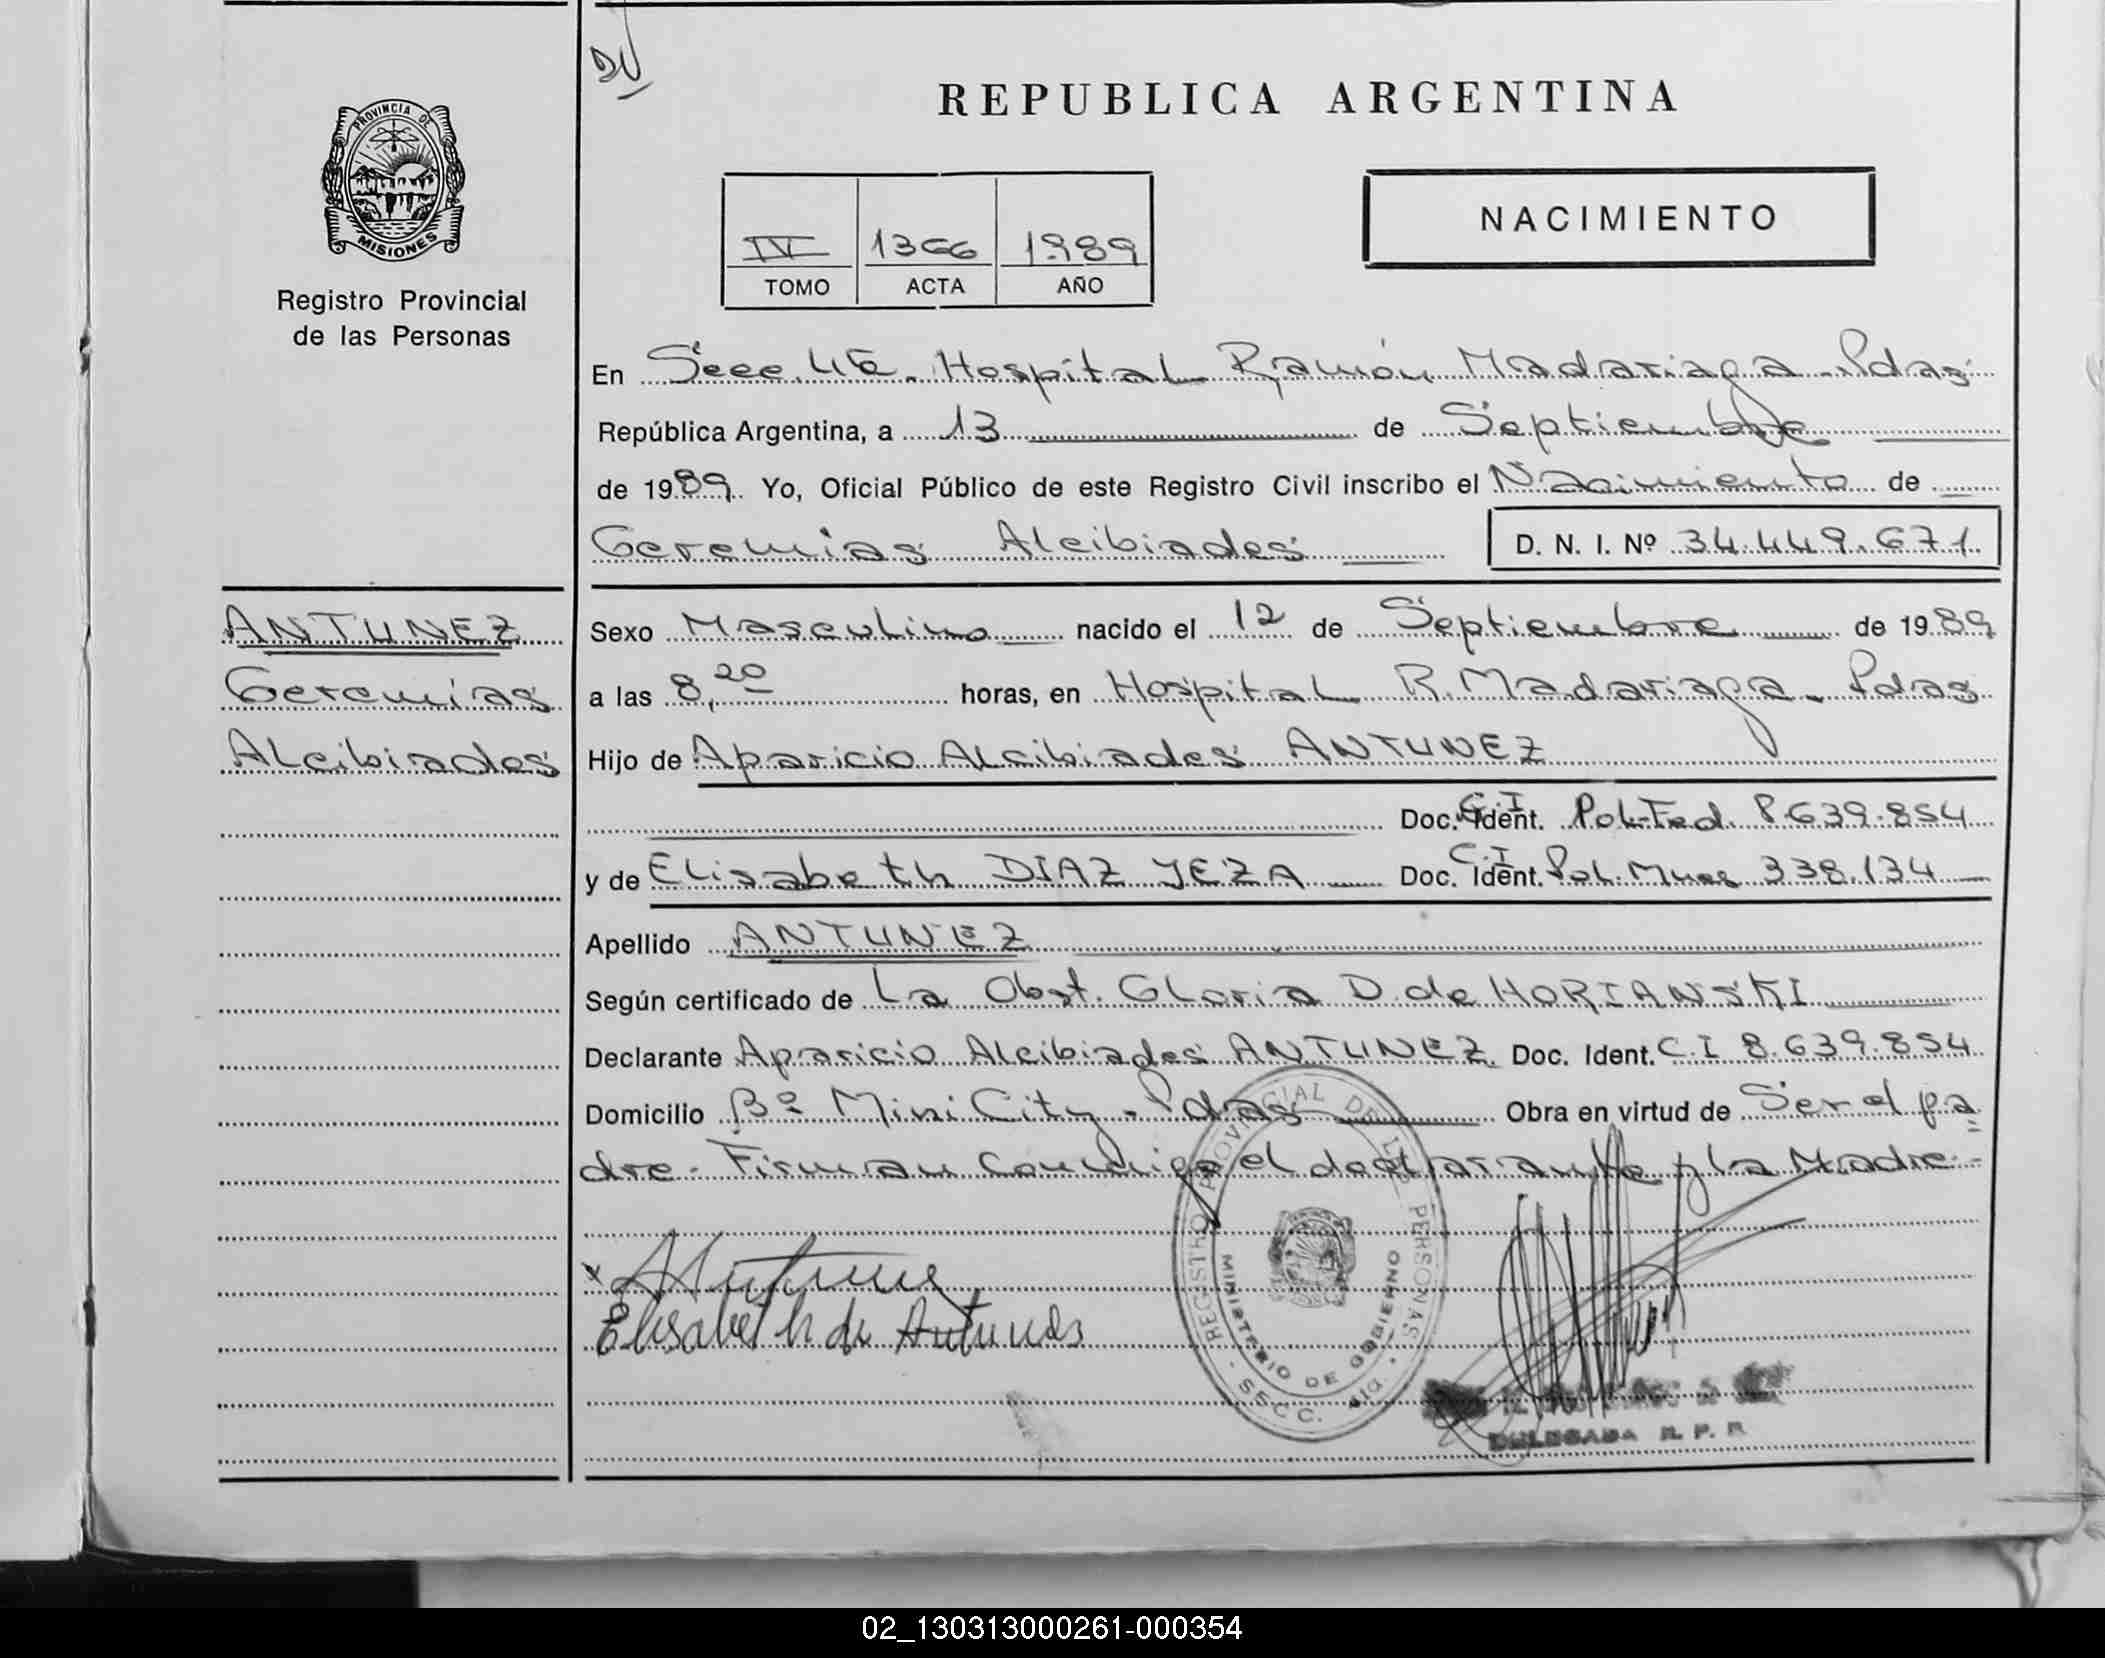 REPUBLICA ARGENTINA
PROVINCIA DE
MISIONES
Registro Provincial
de las Personas
NACIMIENTO
IV 1366 1989
TOMO ACTA AÑO
En Secc. 4ta. Hospital Ramón Madariaga - Pdas
República Argentina, a 13 de Septiembre
de 1989. Yo, Oficial Público de este Registro Civil inscribo el Nacimiento de
Geremías Alcibiades D. N. I. Nº 34.449.671
ANTUNEZ
Geremías
Alcibiades
Sexo Masculino nacido el 12 de Septiembre de 1989
a las 8,20 horas, en Hospital R. Madariaga - Pdas
Hijo de Aparicio Alcibiades ANTUNEZ
Doc. Ident. C.I Pol. Fed. 8.639.854
y de Elisabeth DIAZ YEZA Doc. Ident. C.I Pol. Mnes 338.134
Apellido ANTUNEZ
Según certificado de La Obst. Gloria D. de HORIANSKI
Declarante Aparicio Alcibiades ANTUNEZ Doc. Ident. C.I 8.639.854
Domicilio Bº Mini City - Pdas Obra en virtud de Ser el pa
dre - Firman conmigo el declarante y la Madre -
x Antunez
Elisabeth de Antunes
REGISTRO PROVINCIAL DE LAS PERSONAS
MINISTERIO DE GOBIERNO
SECC.
DELEGADA R. P. P.
02_130313000261-000354